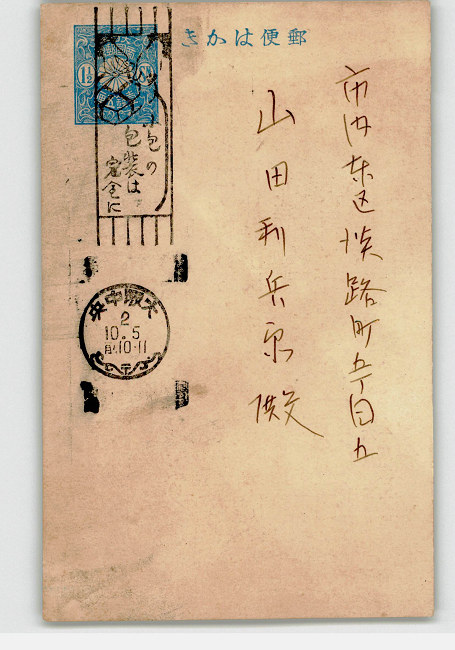 郵便はかき
市内東区淡路町五丁目五
山田利兵衛殿
1½ Sn
小包の
包装は
完全に
大阪中央
2
10.5
前10-11
〒